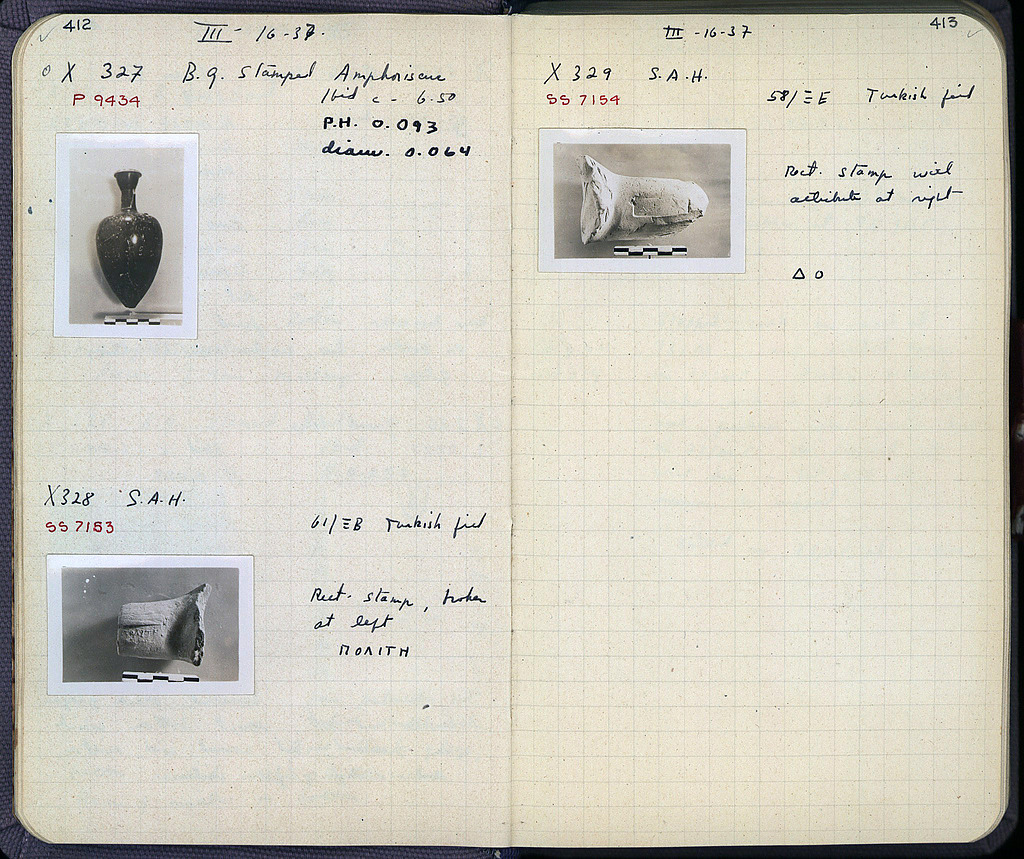 412
III - 16-37.
X 327 B.g. stamped Amphoriscus
P 9434
Ibid c - 6.50
P.H. 0.093
diam. 0.064
X328 S.A.H.
SS 7153
61/ΞB Turkish fill
Rect. stamp, broken
at left
ΠΟΛΙΤΗ
413
III - 16-37
X 329 S.A.H.
SS 7154
58/ΞE Turkish fill
Rect. stamp with
attribute at right
Δ Ο